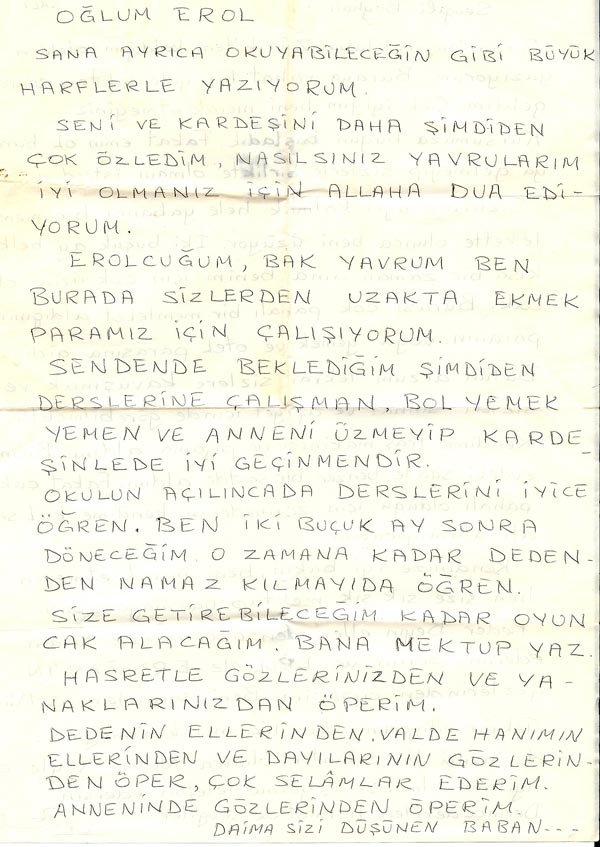 OĞLUM EROL
SANA AYRICA OKUYABİLECEĞİN GİBİ BÜYÜK
HARFLERLE YAZIYORUM.
SENİ VE KARDEŞİNİ DAHA ŞİMDİDEN
ÇOK ÖZLEDİM, NASILSINIZ YAVRULARIM
İYİ OLMANIZ İÇİN ALLAHA DUA EDİ-
YORUM.
EROLCUĞUM, BAK YAVRUM BEN
BURADA SİZLERDEN UZAKTA EKMEK
PARAMIZ İÇİN ÇALIŞIYORUM.
SENDENDE BEKLEDİĞİM ŞİMDİDEN
DERSLERİNE ÇALIŞMAN, BOL YEMEK
YEMEN VE ANNENİ ÜZMEYİP KARDE-
ŞİNLEDE İYİ GEÇİNMENDİR.
OKULUN AÇILINCADA DERSLERİNİ İYİCE
ÖĞREN. BEN İKİ BUÇUK AY SONRA
DÖNECEĞİM. O ZAMANA KADAR DEDEN-
DEN NAMAZ KILMAYIDA ÖĞREN.
SİZE GETİREBİLECEĞİM KADAR OYUN
CAK ALACAĞIM. BANA MEKTUP YAZ.
HASRETLE GÖZLERİNİZDEN VE YA-
NAKLARINIZDAN ÖPERİM.
DEDENİN ELLERİNDEN. VALDE HANIMIN
ELLERİNDEN VE DAYILARININ GÖZLERİN-
DEN ÖPER, ÇOK SELÂMLAR EDERİM.
ANNENİNDE GÖZLERİNDEN ÖPERİM.
DAİMA SİZİ DÜŞÜNEN BABAN---